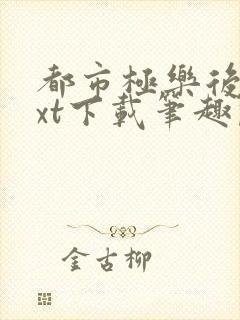 都市極樂後
xt下載筆趣
金古柳